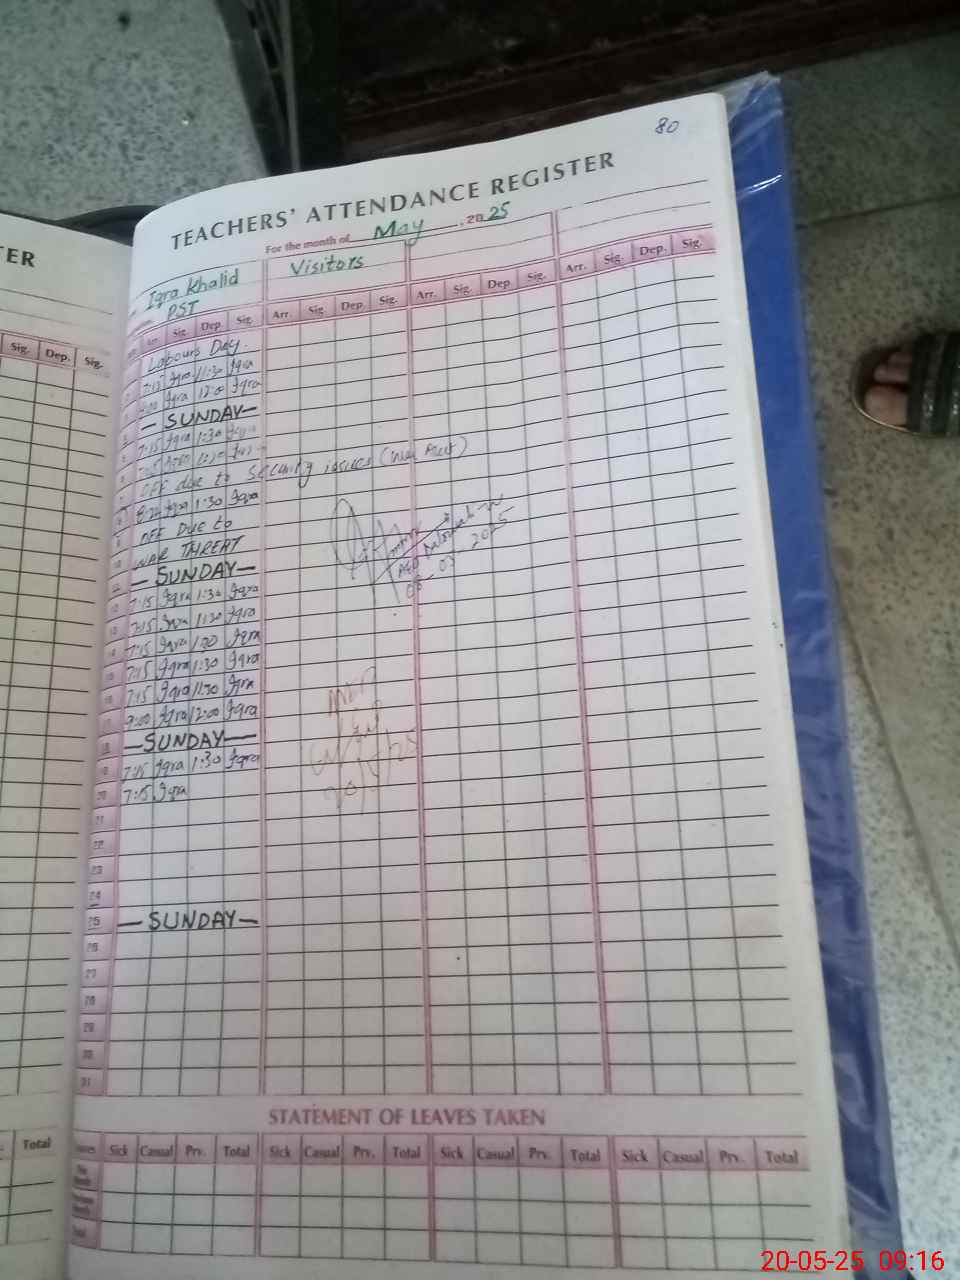 80
TEACHERS' ATTENDANCE REGISTER
For the month of May, 2025
TER
Iqra Khalid
PST
Visitors
Sig. Dep. Sig.
Arr. Sig. Dep. Sig. Arr. Sig. Dep. Sig. Arr. Sig. Dep. Sig. Arr. Sig. Dep. Sig.
Labours Day.
7:15 Iqra 11:30 Iqra
Iqra 12:00 Iqra
— SUNDAY —
7:15 Iqra 1:30 Iqra
OFF due to security issues
8 Iqra 1:30 Iqra
OFF Due to
WAR THREAT
— SUNDAY —
12 7:15 Iqra 1:30 Iqra
13 7:15 Iqra 1:30 Iqra
14 7:15 Iqra 1:30 Iqra
15 7:15 Iqra 1:30 Iqra
16 7:15 Iqra 11:30 Iqra
17 9:00 Iqra 12:00 Iqra
18 — SUNDAY —
19 7:15 Iqra 1:30 Iqra
20 7:15 Iqra
21
22
23
24
25 — SUNDAY —
26
27
28
29
30
31
STATEMENT OF LEAVES TAKEN
Total
Sick Casual Prv. Total Sick Casual Prv. Total Sick Casual Prv. Total Sick Casual Prv. Total
20-05-25 09:16